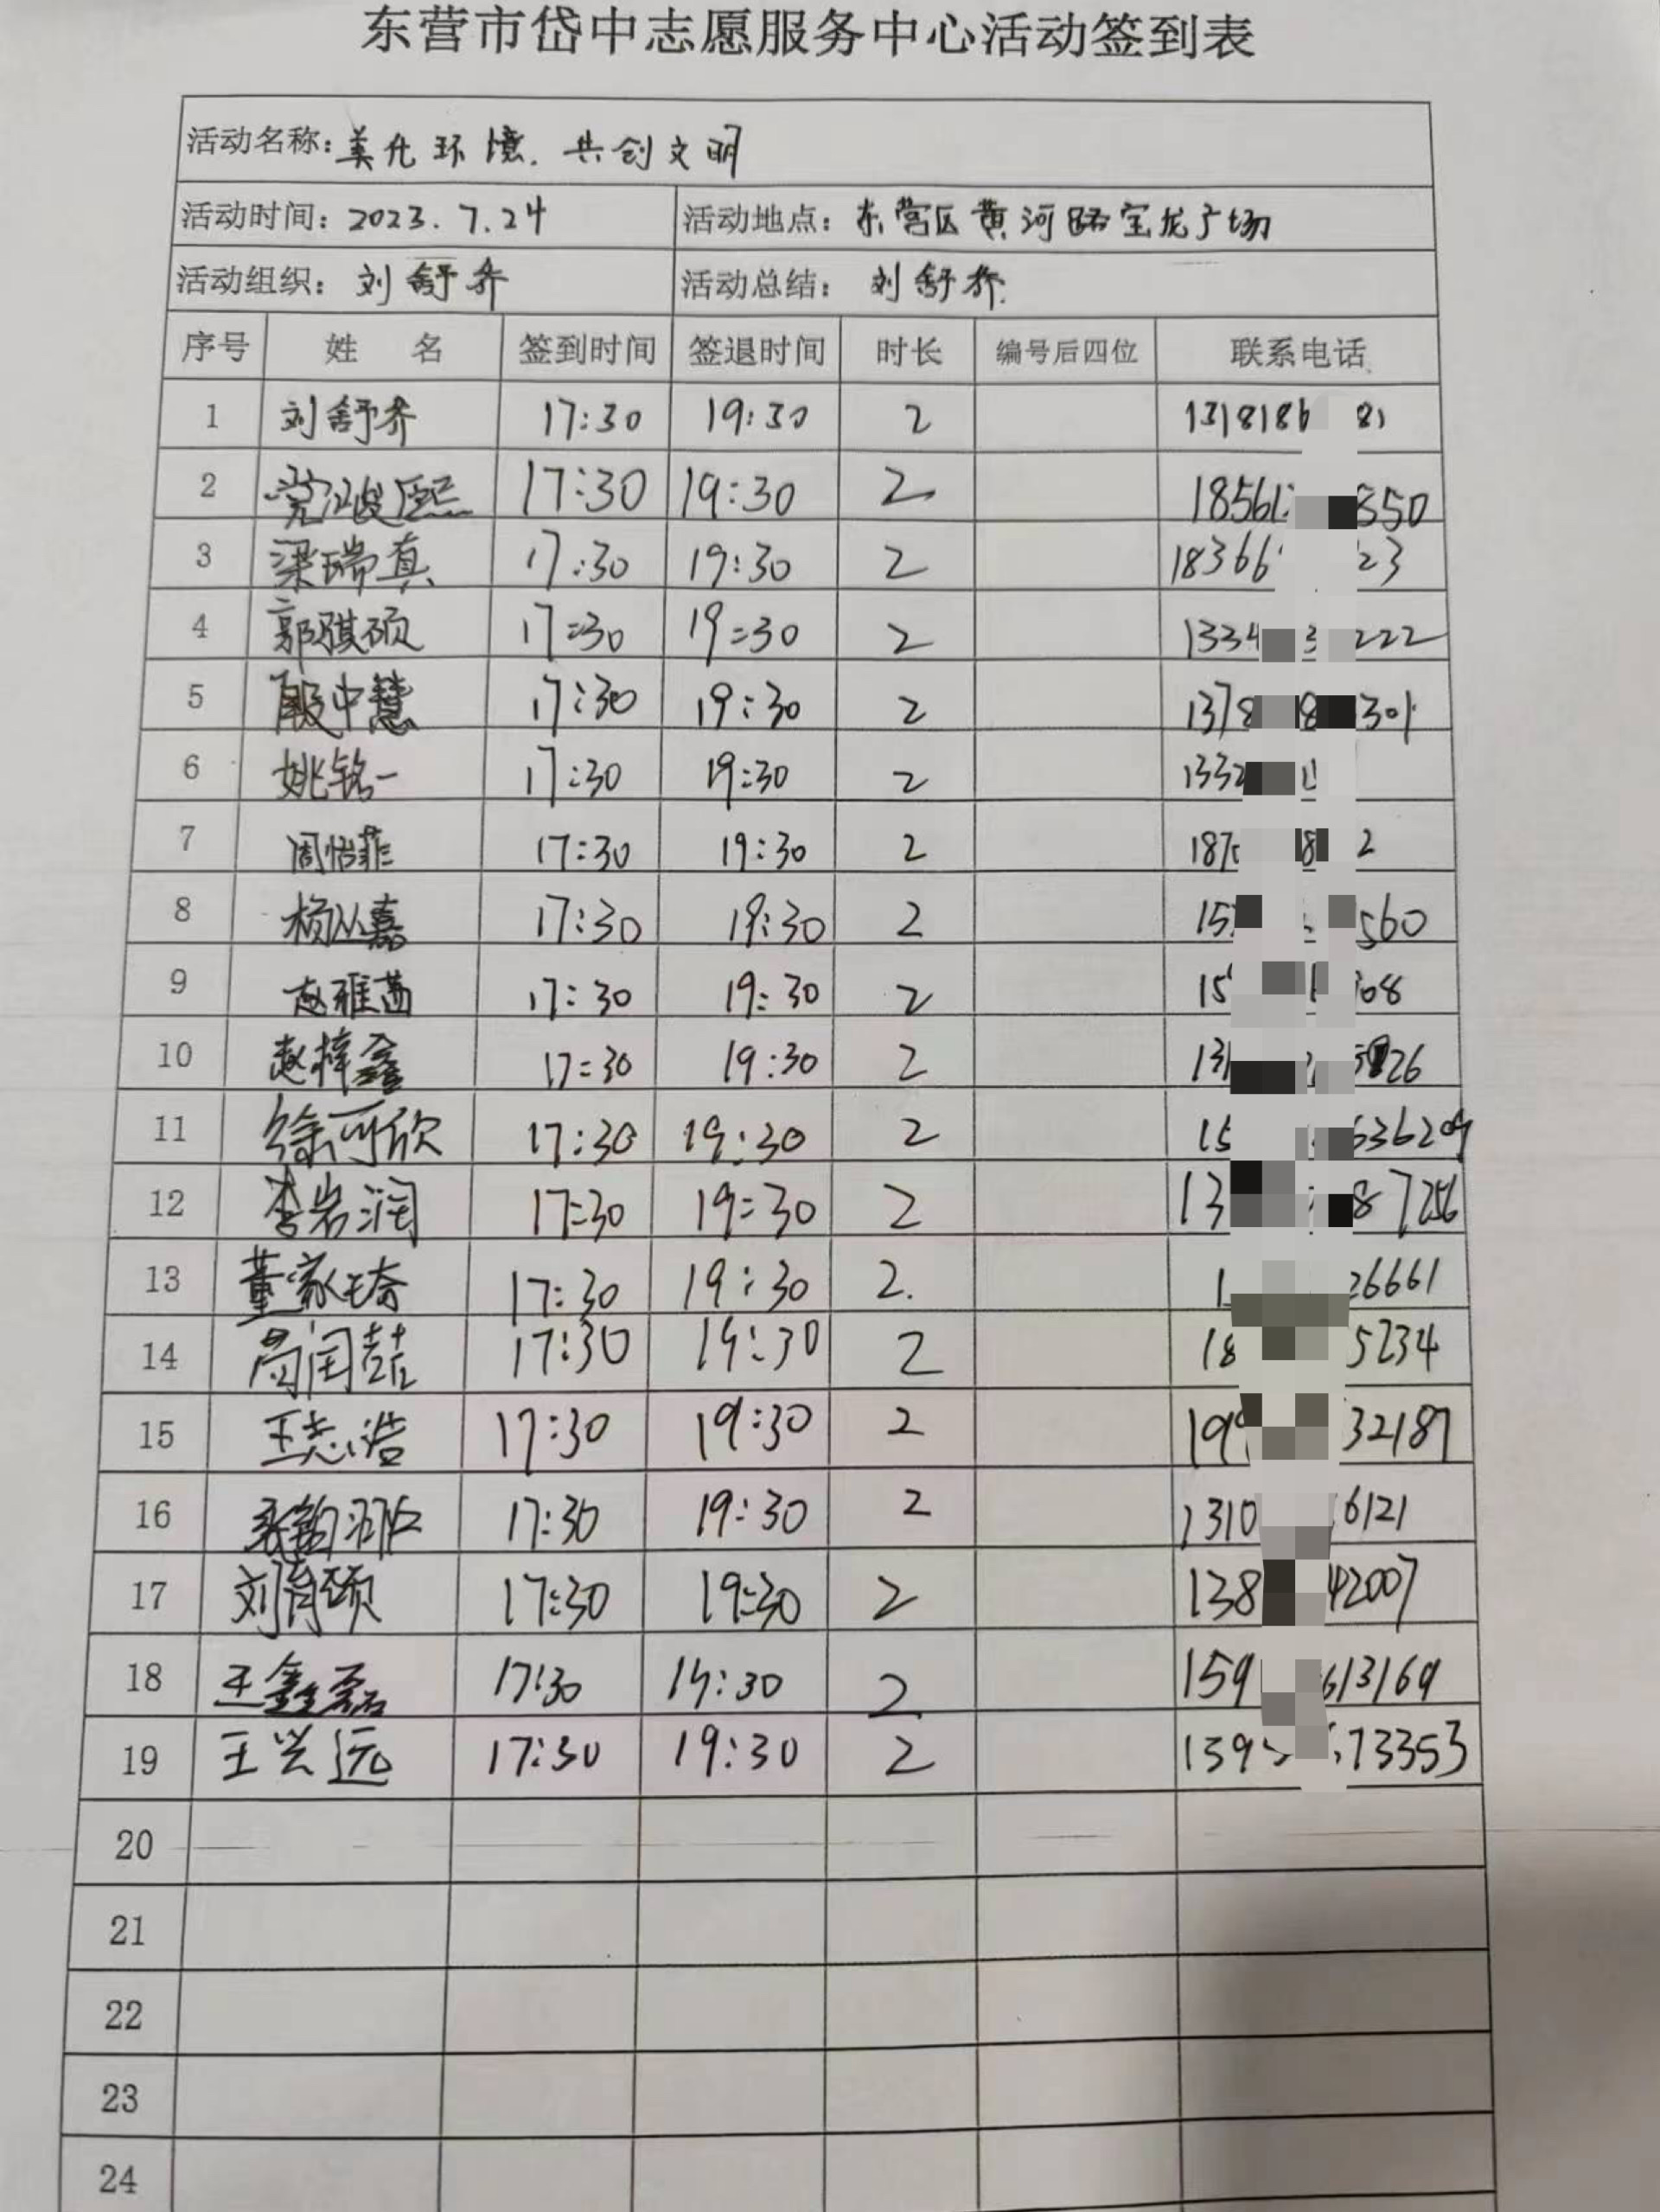 东营市岱中志愿服务中心活动签到表
活动名称：美化环境．共创文明
活动时间：2023.7.24 活动地点：东营区黄河路宝龙广场
活动组织：刘舒乔 活动总结：刘舒乔
序号 姓 名 签到时间 签退时间 时长 编号后四位 联系电话
1 刘舒乔 17:30 19:30 2 131818
2 17:30 19:30 2 18561 550
3 梁瑞真 17:30 19:30 2 18366 23
4 郭骐硕 17:30 19:30 2 1334 3 222
5 殷中慧 17:30 19:30 2 1378 8 301
6 姚铭一 17:30 19:30 2 133
7 周怡菲 17:30 19:30 2 187 8 2
8 杨丛嘉 17:30 19:30 2 15 560
9 赵雅茜 17:30 19:30 2 15 08
10 赵梓鑫 17:30 19:30 2 13 26
11 徐可欣 17:30 19:30 2 15 636209
12 李岩润 17:30 19:30 2 13 87256
13 董家琦 17:30 19:30 2. 1 26661
14 17:30 19:30 2 18 5234
15 王志浩 17:30 19:30 2 199 32187
16 17:30 19:30 2 1310 6121
17 刘育硕 17:30 19:30 2 138 42007
18 王鑫磊 17:30 19:30 2 159 613169
19 王兴远 17:30 19:30 2 1395 73353
20
21
22
23
24